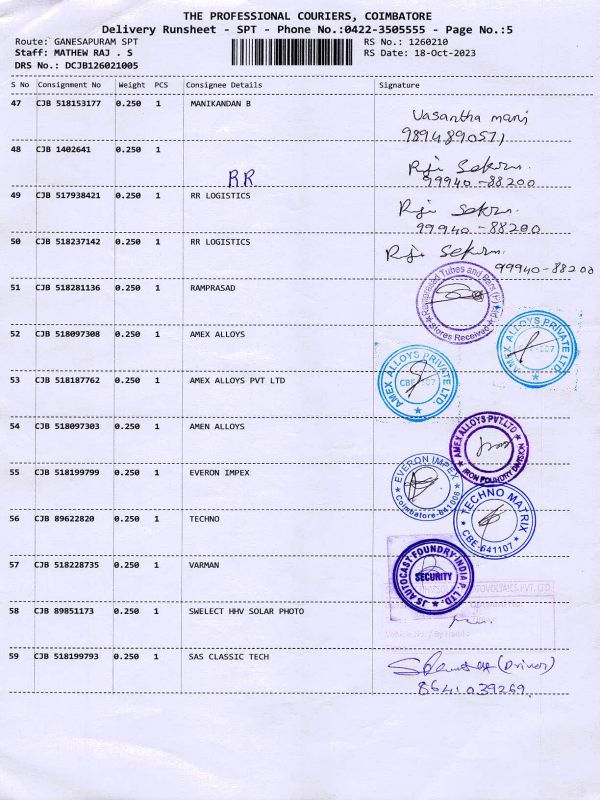 THE PROFESSIONAL COURIERS, COIMBATORE
Delivery Runsheet - SPT - Phone No.:0422-3505555 - Page No.:5
Route: GANESAPURAM SPT
RS No.: 1260210
Staff: MATHEW RAJ . S
RS Date: 18-Oct-2023
DRS No.: DCJB126021005
S No Consignment No Weight PCS Consignee Details Signature
47 CJB 518153177 0.250 1 MANIKANDAN B
Vasantha mani
9894890571
48 CJB 1402641 0.250 1
RR
99940-88200
49 CJB 517938421 0.250 1 RR LOGISTICS
99940-88200
50 CJB 518237142 0.250 1 RR LOGISTICS
99940-88200
51 CJB 518281136 0.250 1 RAMPRASAD
Ramprasad Tubes and Bars (P) Ltd
Stores Received
52 CJB 518097308 0.250 1 AMEX ALLOYS
AMEX ALLOYS PRIVATE LTD.
53 CJB 518187762 0.250 1 AMEX ALLOYS PVT LTD
AMEX ALLOYS PRIVATE LTD.
54 CJB 518097303 0.250 1 AMEN ALLOYS
AMEX ALLOYS PVT.LTD
IRON FOUNDRY DIVISION
55 CJB 518199799 0.250 1 EVERON IMPEX
EVERON IMPEX
Coimbatore-641006
56 CJB 89622820 0.250 1 TECHNO
TECHNO MATRIX
CBE-641107
57 CJB 518228735 0.250 1 VARMAN
JS AUTOCAST FOUNDRY INDIA P. LTD.
SECURITY
58 CJB 89851173 0.250 1 SWELECT HHV SOLAR PHOTO
Vehicle No. / By Hand :
59 CJB 518199793 0.250 1 SAS CLASSIC TECH
(Driver)
8641039269